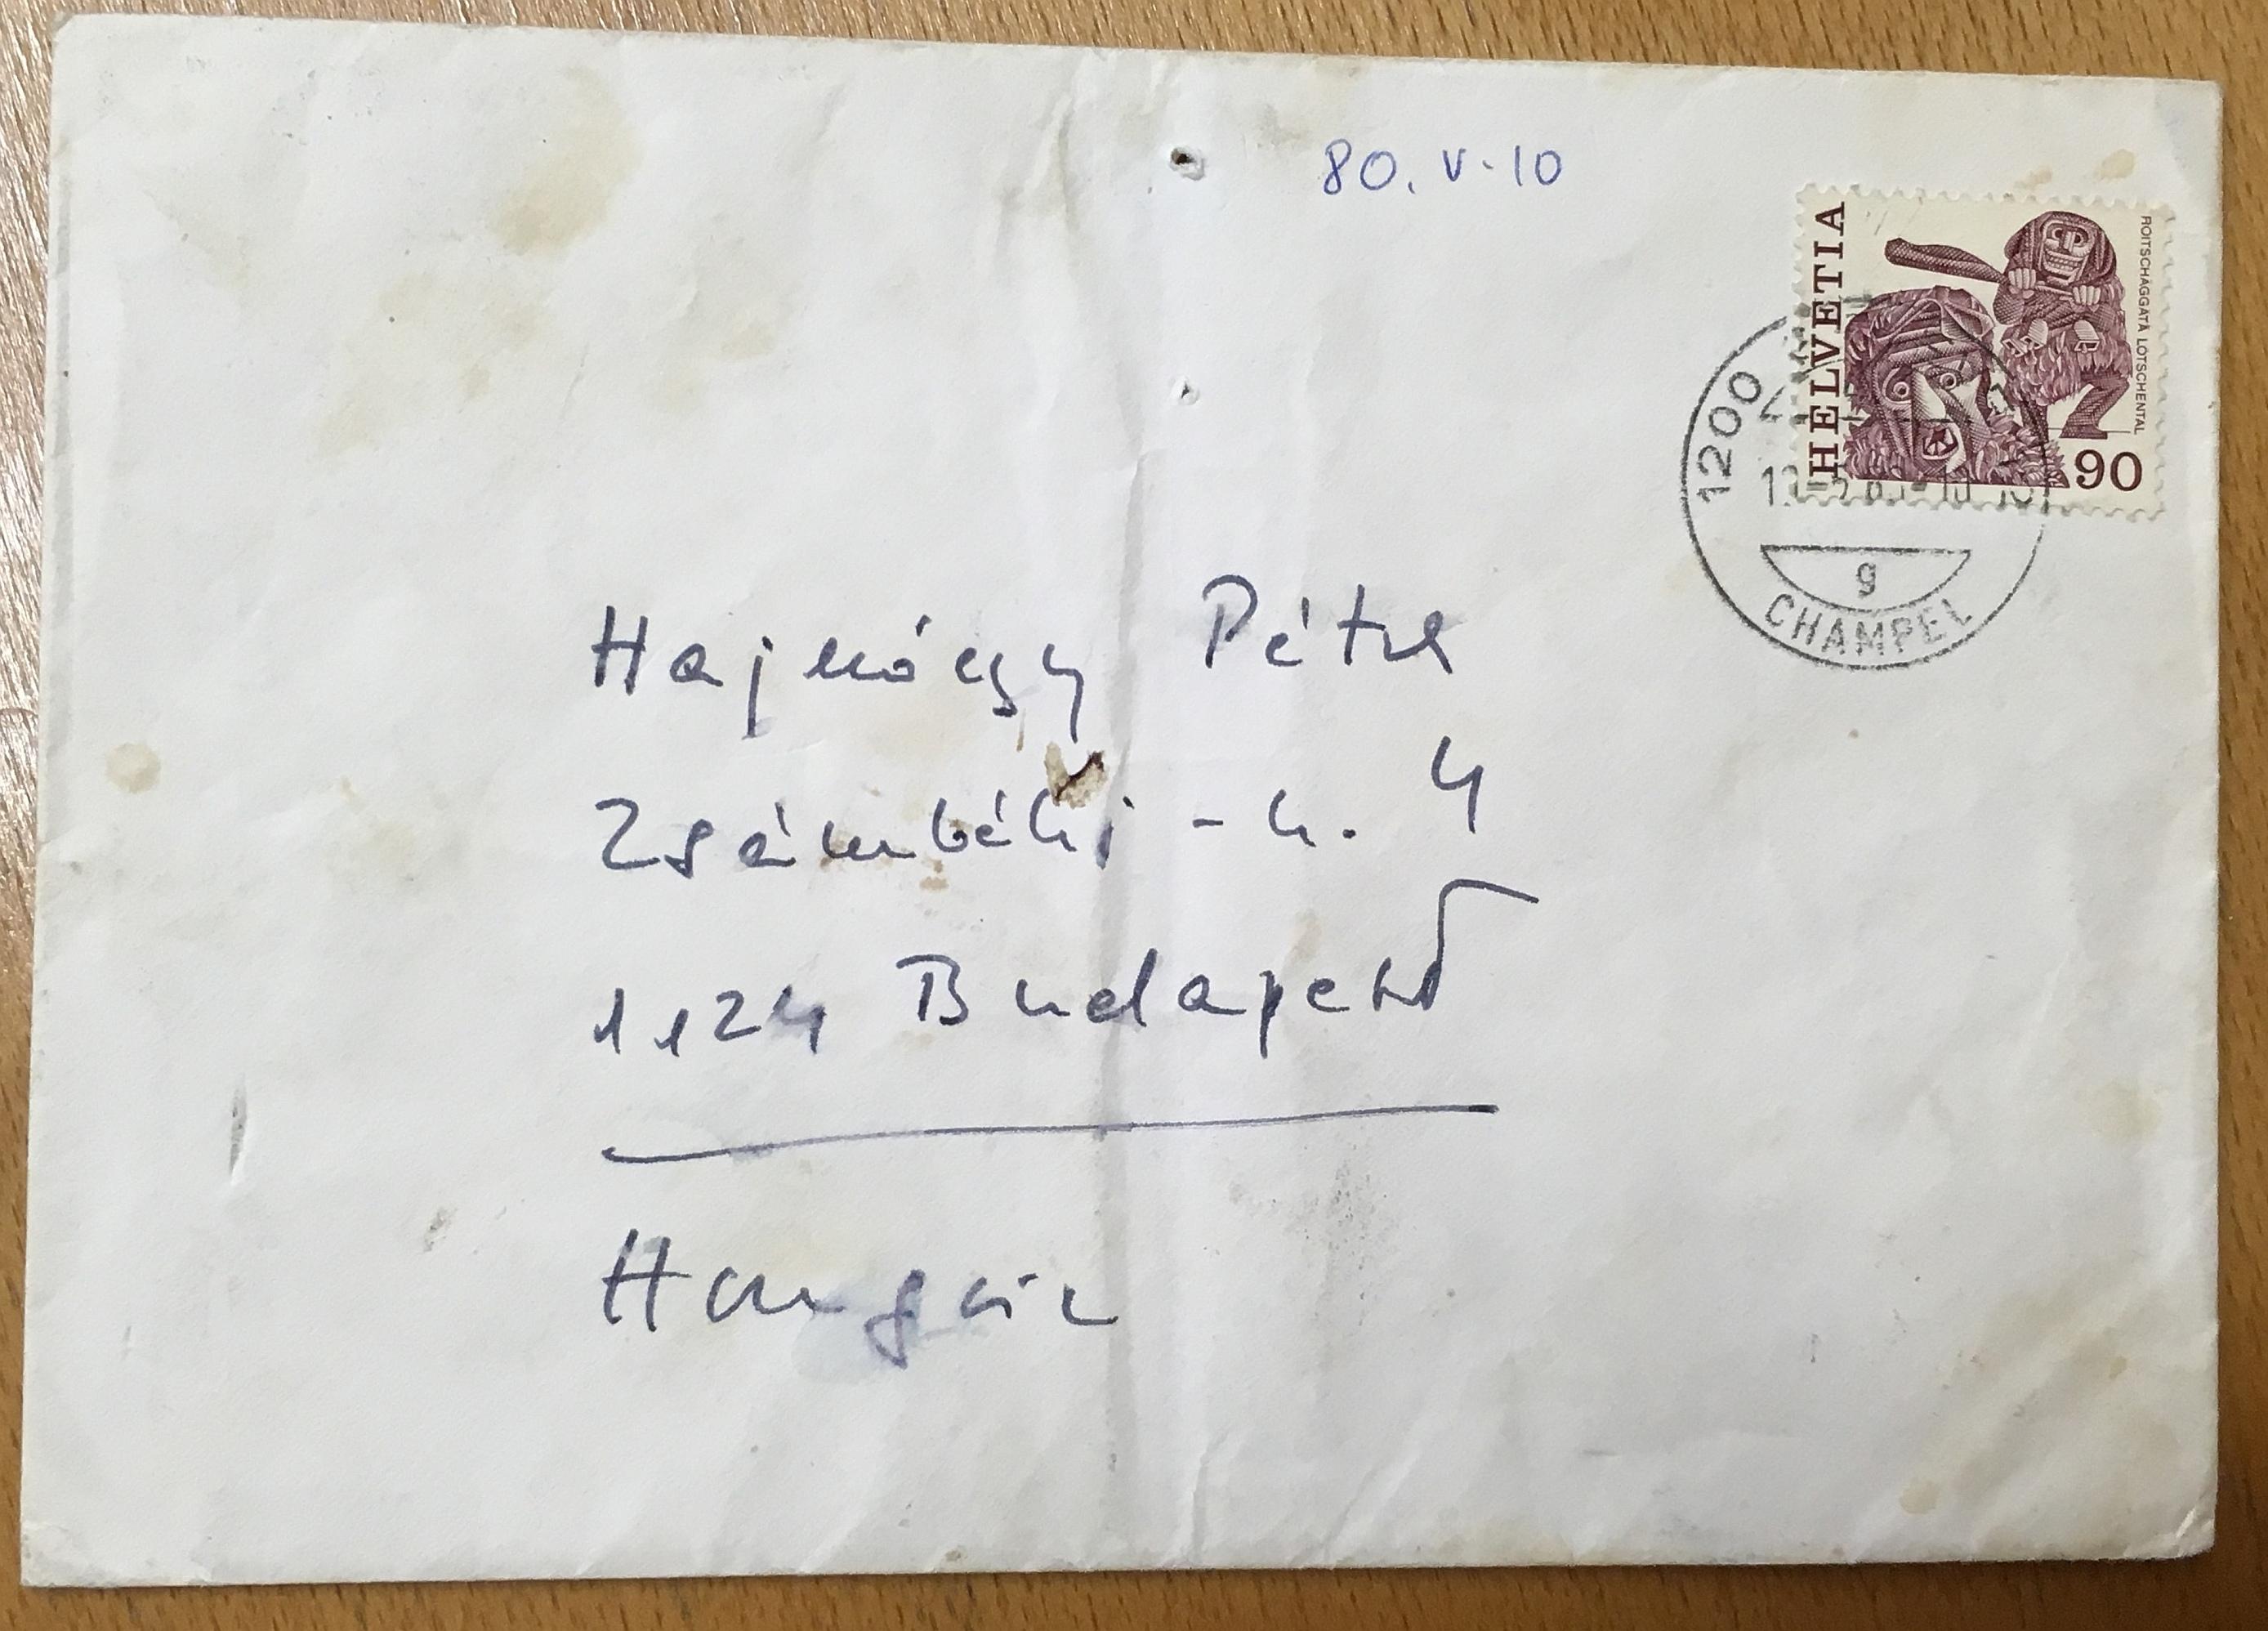 80. V. 10
HELVETIA
ROITSCHÄGGATA LÖTSCHENTAL
90
1200
g
CHAMPEL
Hajnóczy Péter
Zsámbéki - u. 4
1124 Budapest
Hongrie